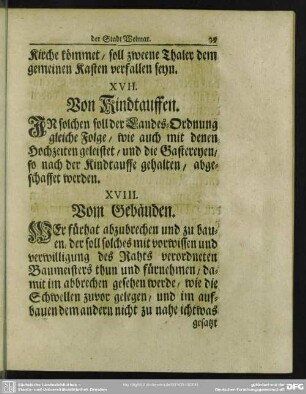 der Stadt Weimar. 39
Kirche kömmet / soll zweene Thaler dem
gemeinen Kasten verfallen seyn.
XVII.
Von Kindtauffen.
IN solchen soll der Landes-Ordnung
gleiche Folge / wie auch mit denen
Hochzeiten geleistet / und die Gastereyen /
so nach der Kindtauffe gehalten / abge-
schaffet werden.
XVIII.
Vom Gebäuden.
WEr fürhat abzubrechen und zu bau-
en, der soll solches mit vorwissen und
verwilligung des Rahts verordneten
Baumeisters thun und fürnehmen / da-
mit im abbrechen gesehen werde / wie die
Schwellen zuvor gelegen / und im auf-
bauen dem andern nicht zu nahe ichtwas
gesatzt